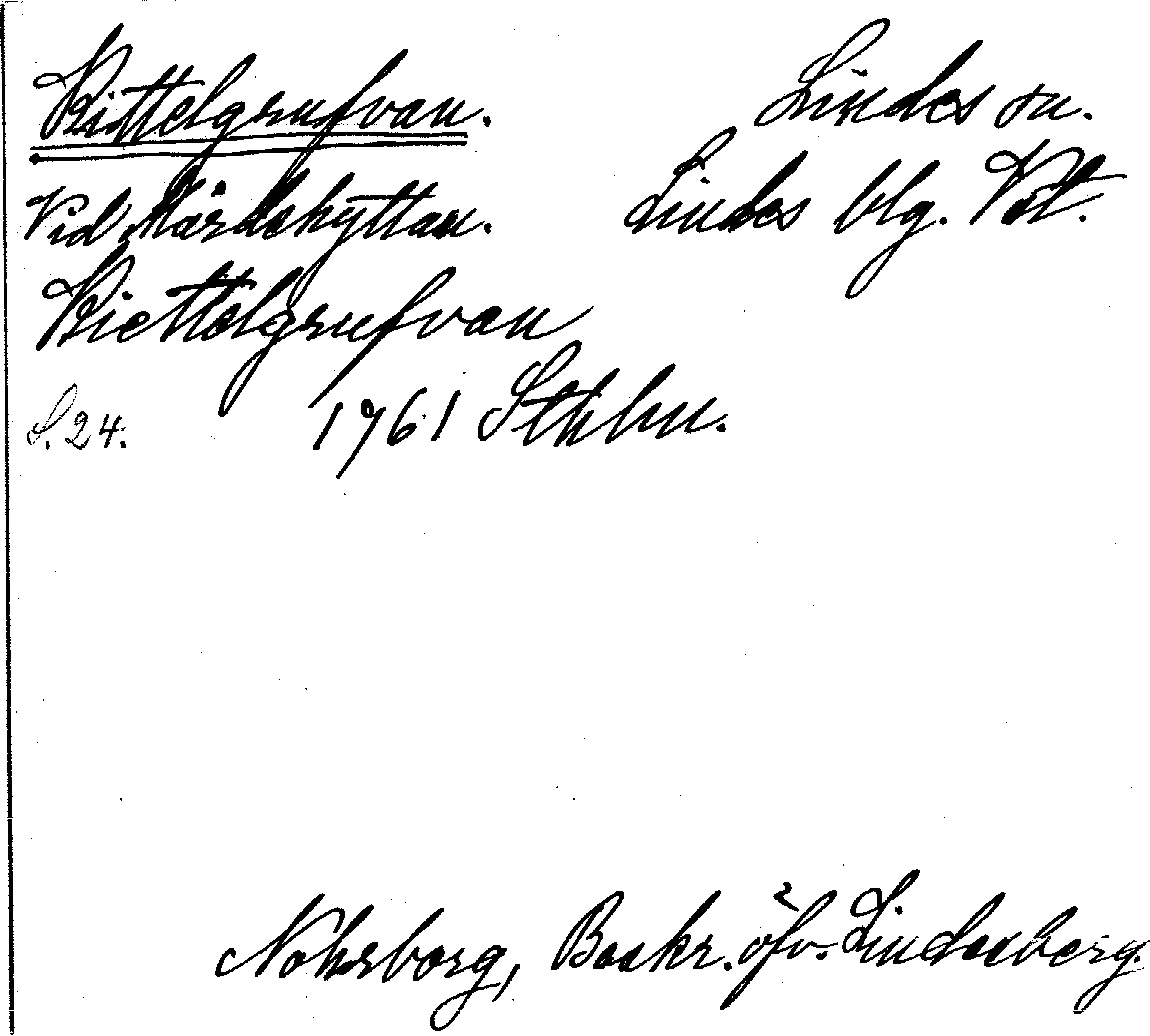 Kittelgrufvan. Lindes sn.
Vid Mårdshyttan. Lindes blg. Vstl.
Kiettelgrufvan
S. 24. 1761 Sthlm.
Nohrborg, Beskr. öfv. Lindesberg.